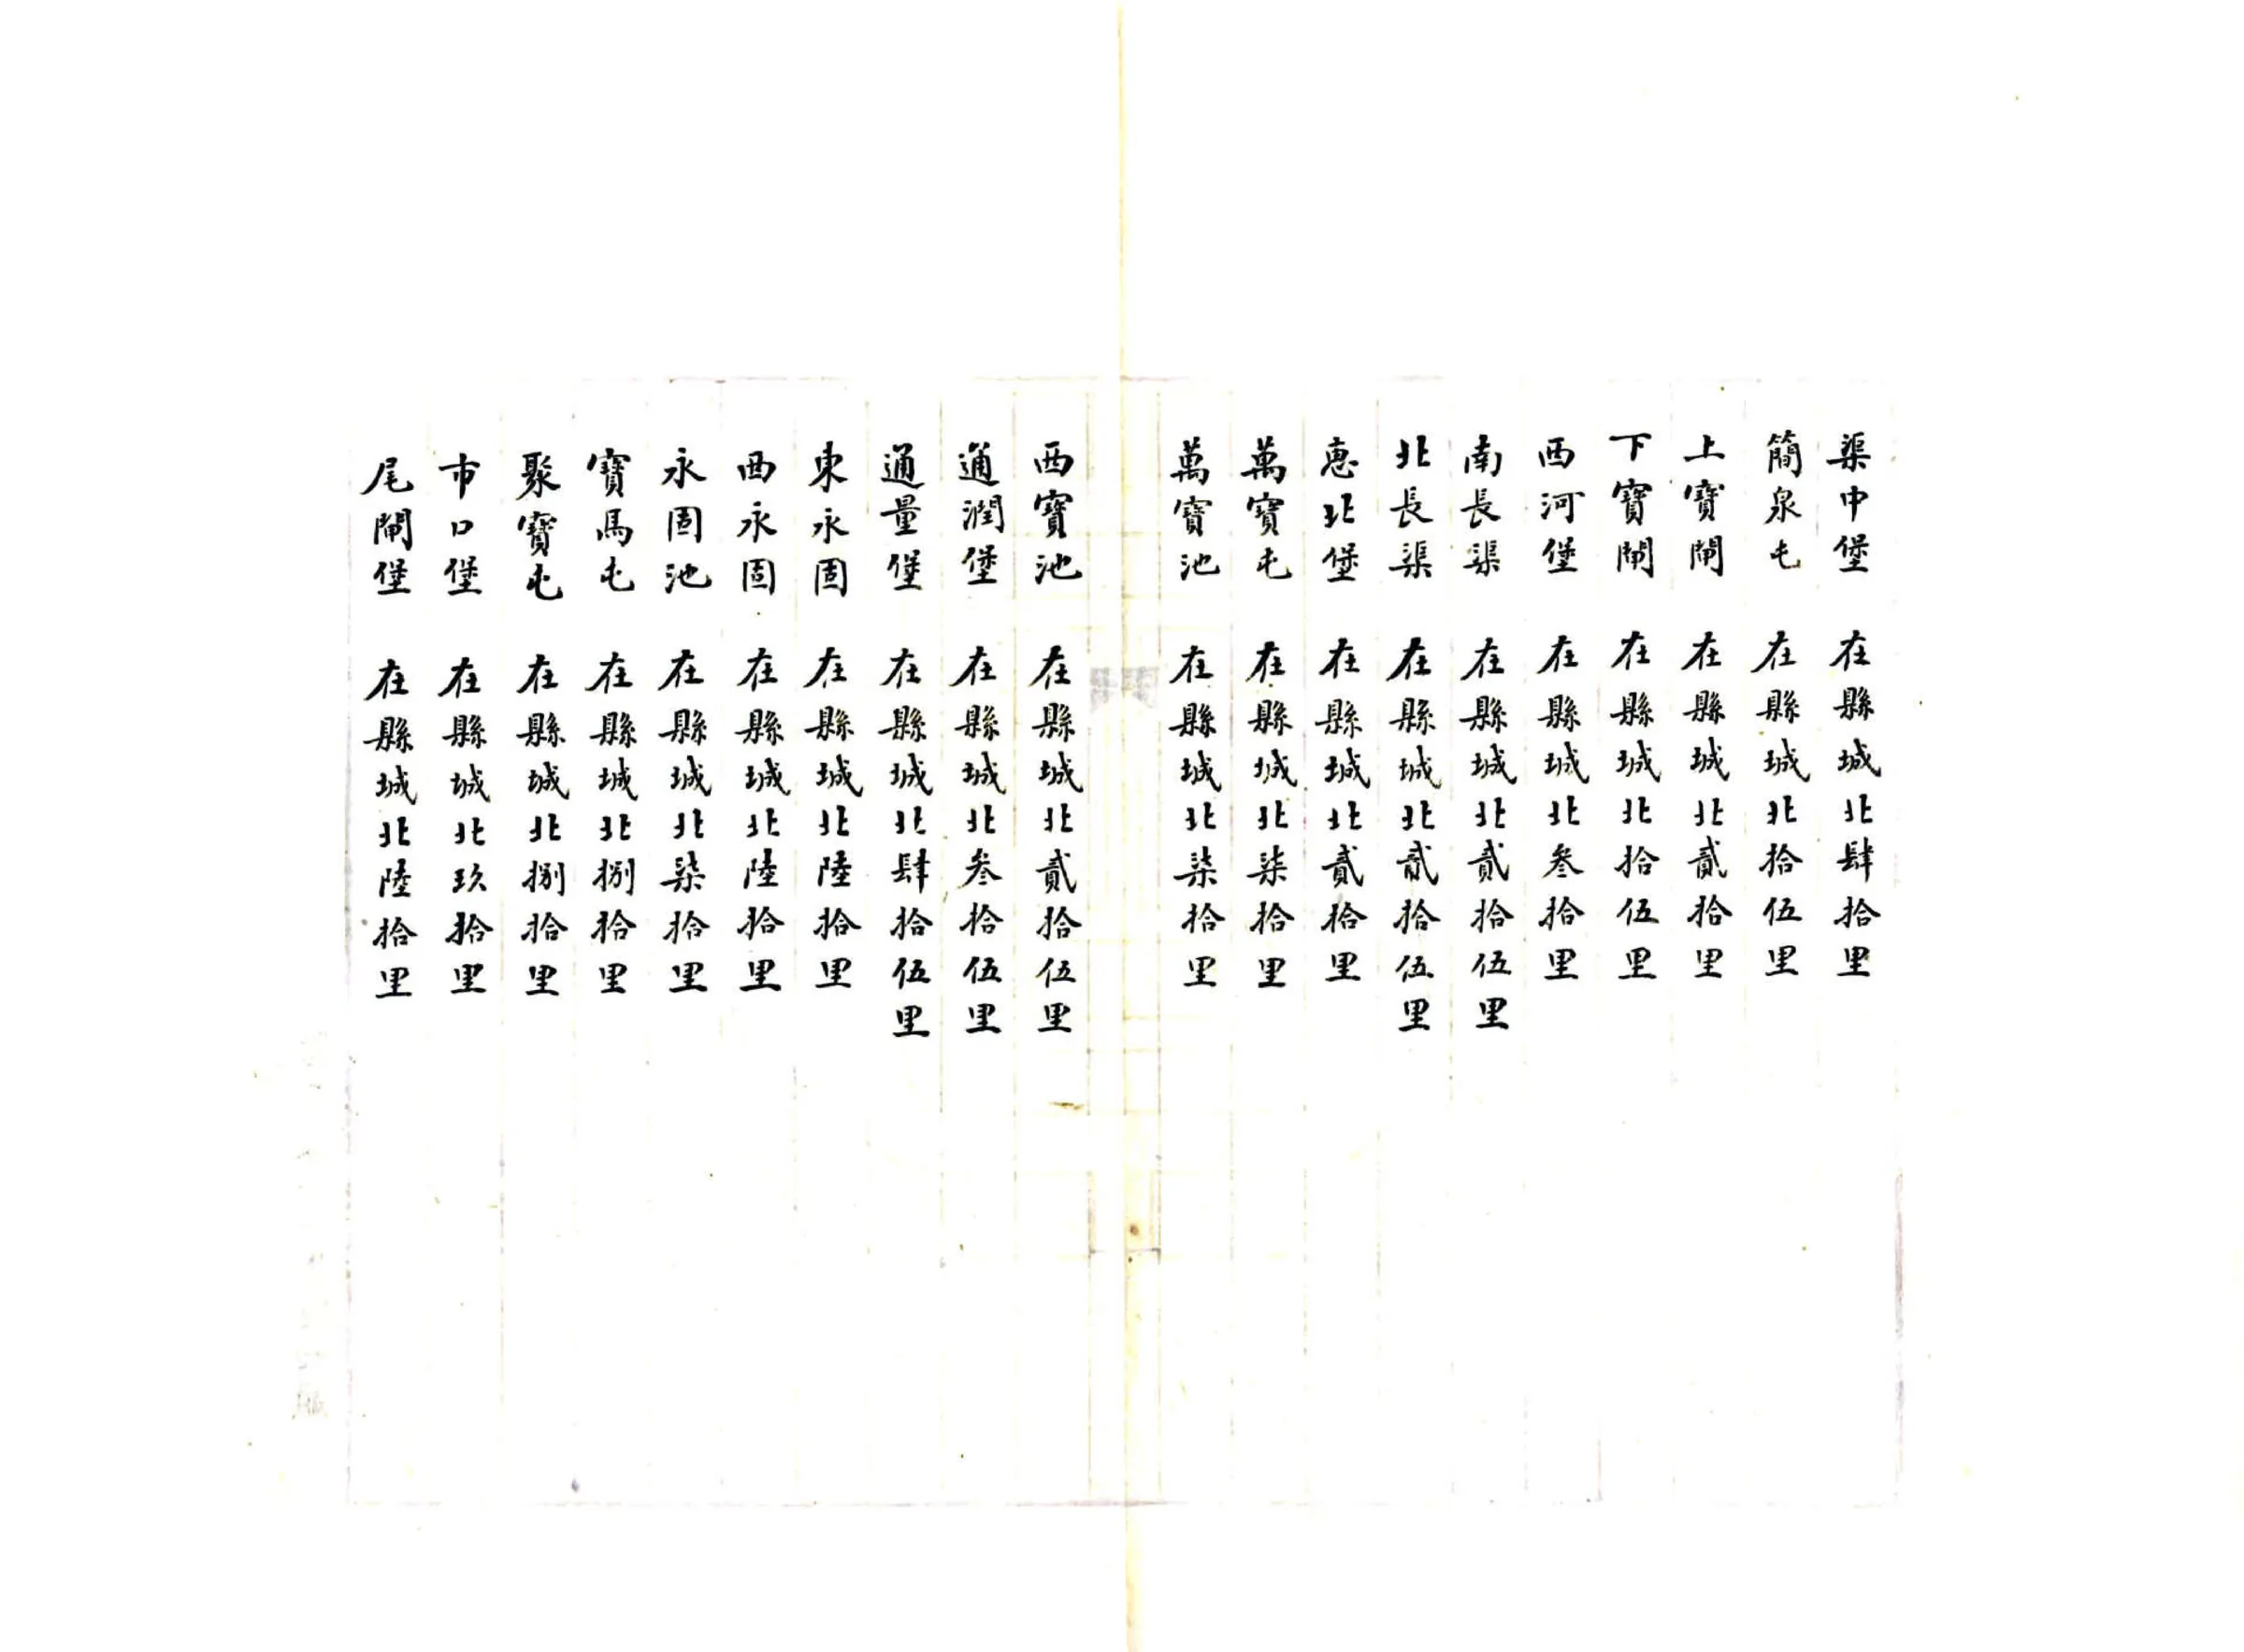 渠中堡　在縣城北肆拾里
簡泉屯　在縣城北拾伍里
上寶閘　在縣城北貳拾里
下寶閘　在縣城北拾伍里
西河堡　在縣城北叁拾里
南長渠　在縣城北貳拾伍里
北長渠　在縣城北貳拾伍里
惠北堡　在縣城北貳拾里
萬寶屯　在縣城北柒拾里
萬寶池　在縣城北柒拾里
西寶池　在縣城北貳拾伍里
通潤堡　在縣城北叁拾伍里
通量堡　在縣城北肆拾伍里
東永固　在縣城北陸拾里
西永固　在縣城北陸拾里
永固池　在縣城北柒拾里
寶馬屯　在縣城北捌拾里
聚寶屯　在縣城北捌拾里
市口堡　在縣城北玖拾里
尾閘堡　在縣城北陸拾里